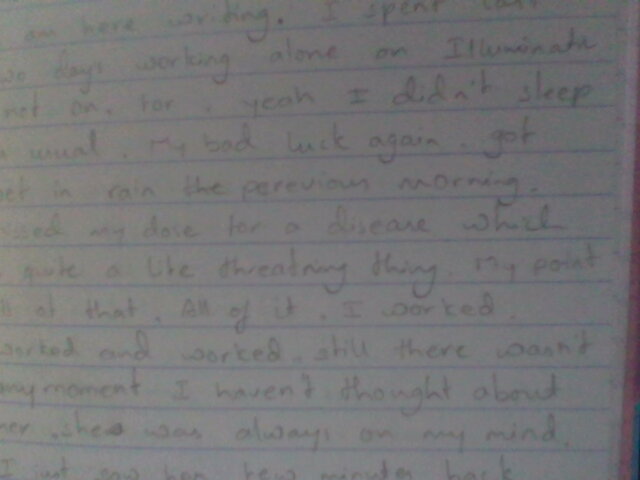 am here writing. I spent last
two days working alone on Illuminati
not on. for. yeah I didn't sleep
usual. My bad luck again. got
wet in rain the perevious morning.
missed my dose for a disease which
quite a life threatning thing. My point
of that. All of it. I worked.
worked and worked. still there wasn't
any moment I haven't thought about
her. she was always on my mind.
I just saw her few minutes back